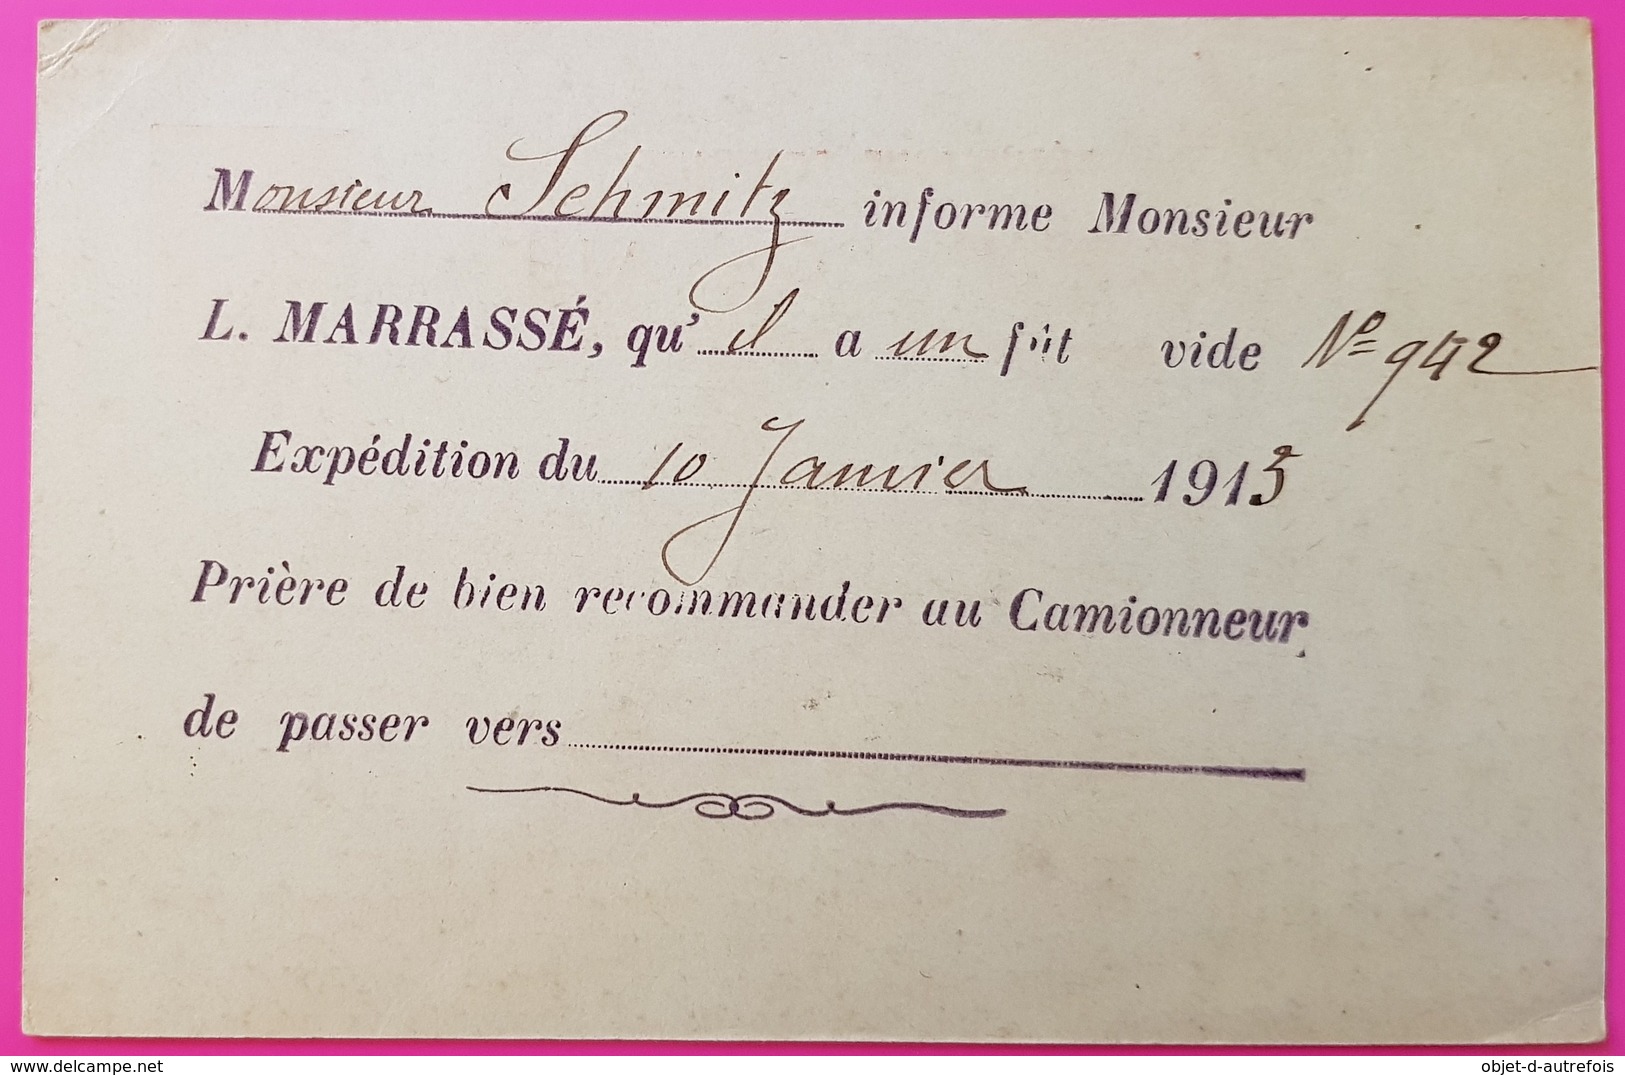 Monsieur Schmitz informe Monsieur
L. MARRASSÉ, qu'il a un fût vide No 942
Expédition du 10 Janvier 1913
Prière de bien recommander au Camionneur
de passer vers
objet-d-autrefois